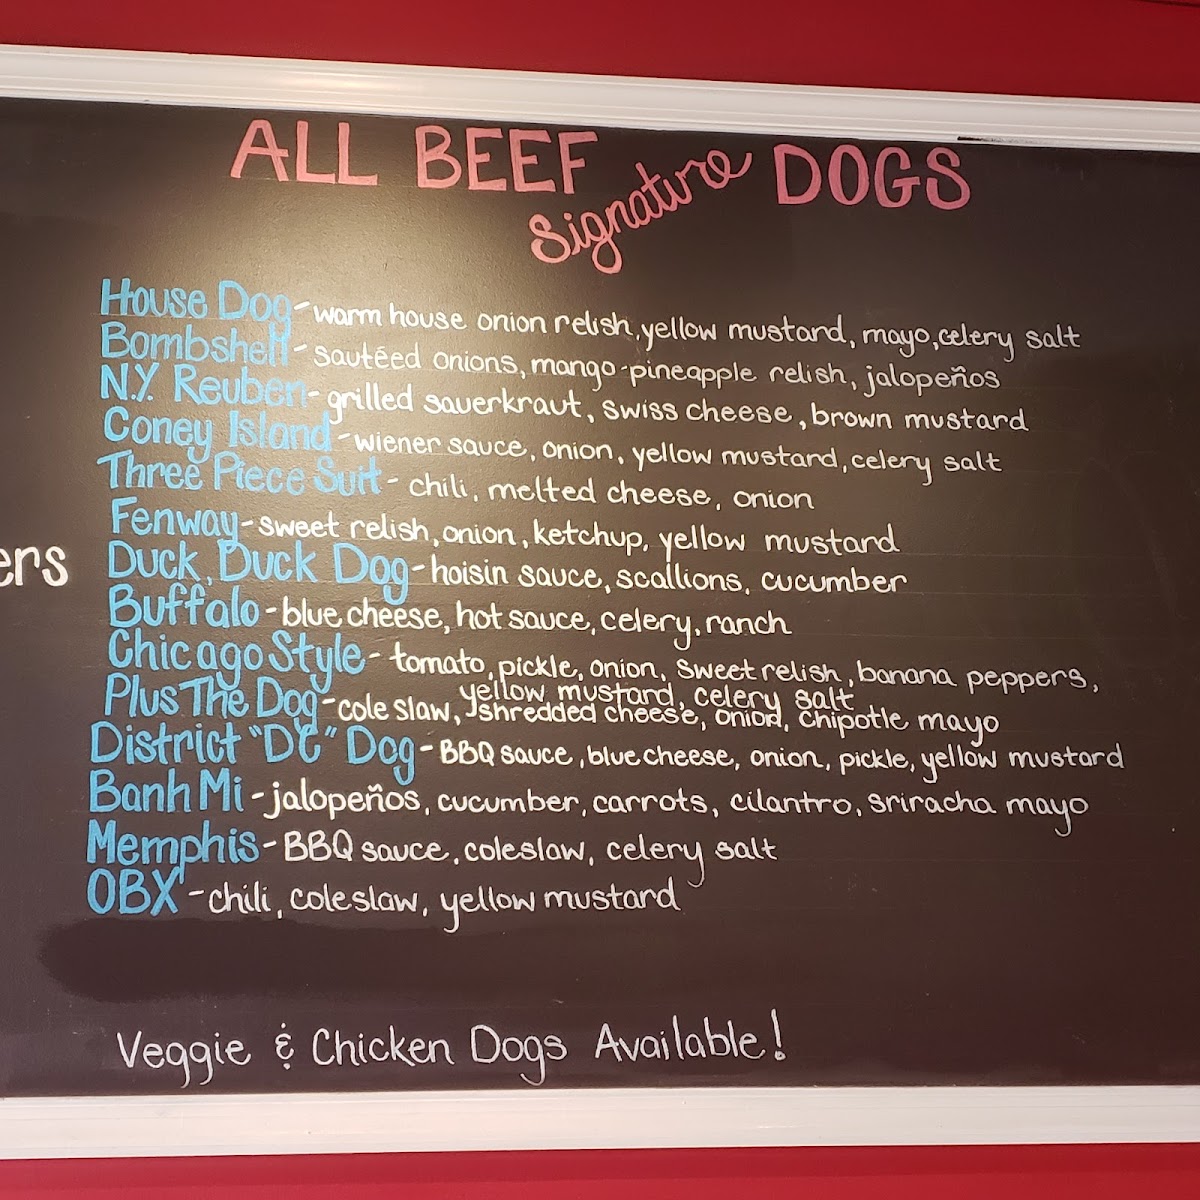 ALL BEEF Signature DOGS
House Dog - warm house onion relish, yellow mustard, mayo, celery salt
Bombshell - sautéed onions, mango-pineapple relish, jalopeños
N.Y. Reuben - grilled sauerkraut, swiss cheese, brown mustard
Coney Island - wiener sauce, onion, yellow mustard, celery salt
Three Piece Suit - chili, melted cheese, onion
Fenway - sweet relish, onion, ketchup, yellow mustard
ers
Duck, Duck Dog - hoisin sauce, scallions, cucumber
Buffalo - blue cheese, hot sauce, celery, ranch
Chicago Style - tomato, pickle, onion, sweet relish, banana peppers,
yellow mustard, celery salt
Plus The Dog - cole slaw, shredded cheese, onion, chipotle mayo
District "DC" Dog - BBQ sauce, blue cheese, onion, pickle, yellow mustard
Banh Mi - jalopeños, cucumber, carrots, cilantro, sriracha mayo
Memphis - BBQ sauce, coleslaw, celery salt
OBX - chili, coleslaw, yellow mustard
Veggie & Chicken Dogs Available!